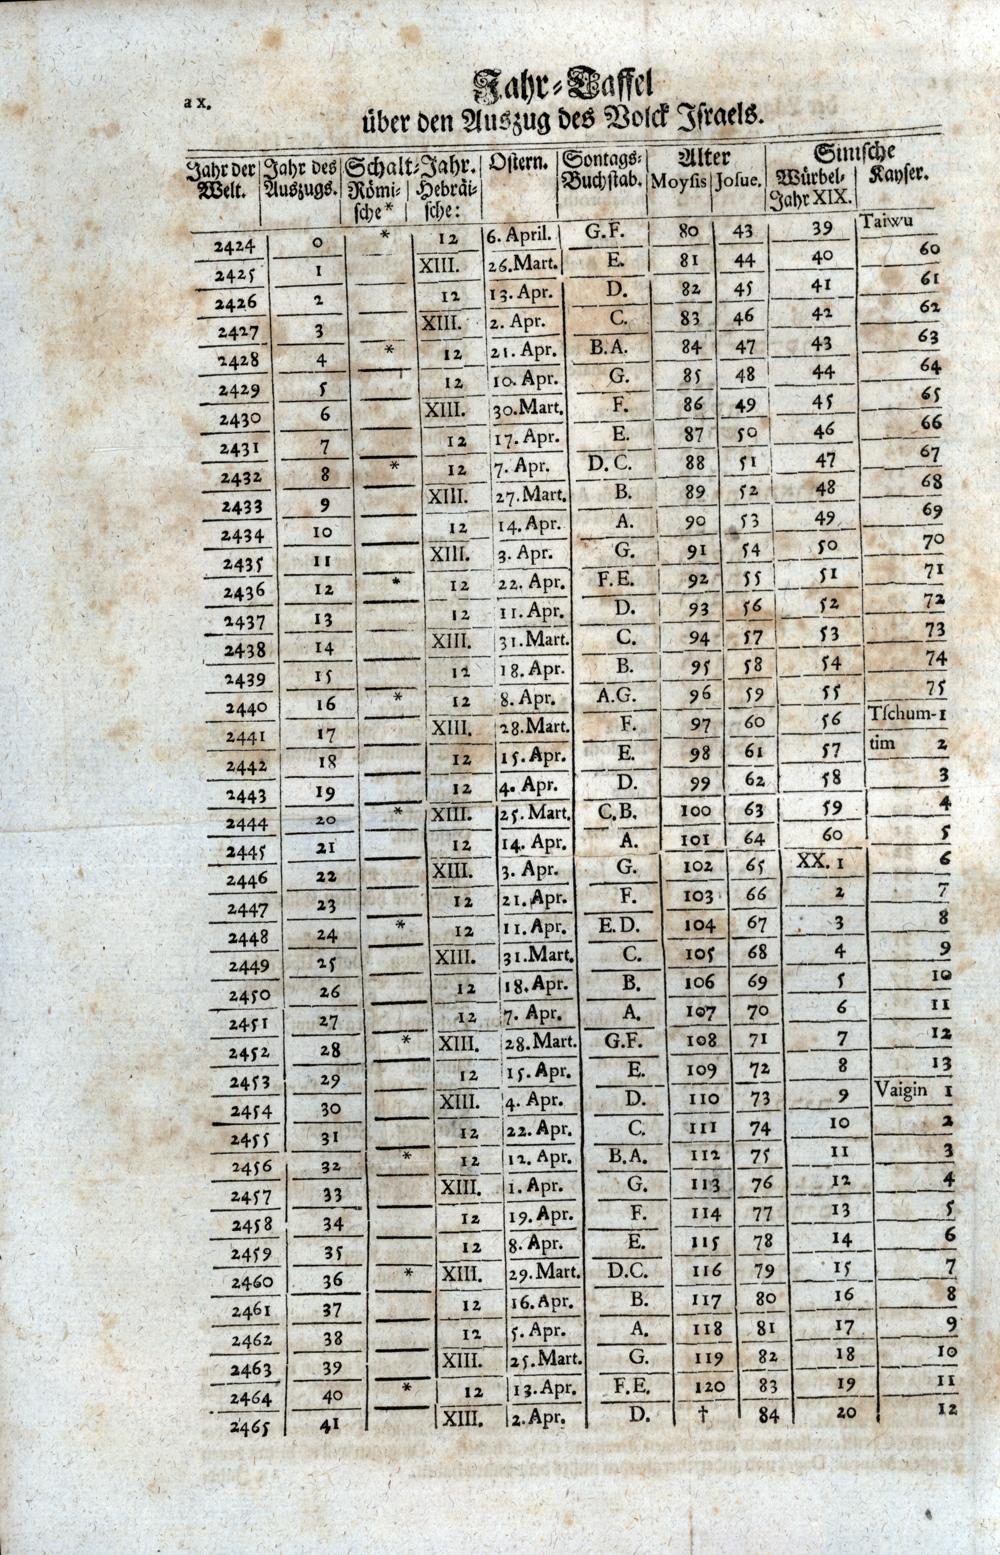 a x.
Jahr-Taffel
über den Auszug des Volck Israels.
Jahr der Welt. | Jahr des Auszugs. | Schalt-Jahr. Römische* | Hebräische: | Ostern. | Sontags-Buchstab. | Alter Moysis | Josue. | Sinische Würbel-Jahr XIX. | Kayser.
2424 0 * 12 6. April. G.F. 80 43 39 Taiwu
2425 1 XIII. 26. Mart. E. 81 44 40 60
2426 2 12 13. Apr. D. 82 45 41 61
2427 3 XIII. 2. Apr. C. 83 46 42 62
2428 4 * 12 21. Apr. B.A. 84 47 43 63
2429 5 12 10. Apr. G. 85 48 44 64
2430 6 XIII. 30. Mart. F. 86 49 45 65
2431 7 12 17. Apr. E. 87 50 46 66
2432 8 * 12 7. Apr. D.C. 88 51 47 67
2433 9 XIII. 27. Mart. B. 89 52 48 68
2434 10 12 14. Apr. A. 90 53 49 69
2435 11 XIII. 3. Apr. G. 91 54 50 70
2436 12 * 12 22. Apr. F.E. 92 55 51 71
2437 13 12 11. Apr. D. 93 56 52 72
2438 14 XIII. 31. Mart. C. 94 57 53 73
2439 15 12 18. Apr. B. 95 58 54 74
2440 16 * 12 8. Apr. A.G. 96 59 55 75
2441 17 XIII. 28. Mart. F. 97 60 56 Tschum- 1
2442 18 12 15. Apr. E. 98 61 57 tim 2
2443 19 12 4. Apr. D. 99 62 58 3
2444 20 * XIII. 25. Mart. C.B. 100 63 59 4
2445 21 12 14. Apr. A. 101 64 60 5
2446 22 XIII. 3. Apr. G. 102 65 XX. 1 6
2447 23 12 21. Apr. F. 103 66 2 7
2448 24 * 12 11. Apr. E.D. 104 67 3 8
2449 25 XIII. 31. Mart. C. 105 68 4 9
2450 26 12 18. Apr. B. 106 69 5 10
2451 27 12 7. Apr. A. 107 70 6 11
2452 28 * XIII. 28. Mart. G.F. 108 71 7 12
2453 29 12 15. Apr. E. 109 72 8 13
2454 30 XIII. 4. Apr. D. 110 73 9 Vaigin 1
2455 31 12 22. Apr. C. 111 74 10 2
2456 32 * 12 12. Apr. B.A. 112 75 11 3
2457 33 XIII. 1. Apr. G. 113 76 12 4
2458 34 12 19. Apr. F. 114 77 13 5
2459 35 12 8. Apr. E. 115 78 14 6
2460 36 * XIII. 29. Mart. D.C. 116 79 15 7
2461 37 12 16. Apr. B. 117 80 16 8
2462 38 12 5. Apr. A. 118 81 17 9
2463 39 XIII. 25. Mart. G. 119 82 18 10
2464 40 * 12 13. Apr. F.E. 120 83 19 11
2465 41 XIII. 2. Apr. D. † 84 20 12